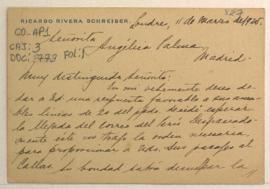 RICARDO RIVERA SCHREIBER
Londres, 11 de Marzo de 1925.
CO-AP1
CAJ: 3
DOC: 773 FOL: 1
Señorita Angélica Palma
Madrid.
Muy distinguida señorita:
En mi vehemente deseo de
dar a Ud. una respuesta favorable a sus ama
bles líneas de 20 del ppdo. decidí esperar
la llegada del correo del Perú. Desgraciada
mente este no trajo la orden necesaria
para proporcionar a Uds. sus pasajes al
Callao. Su bondad sabrá disculpar la